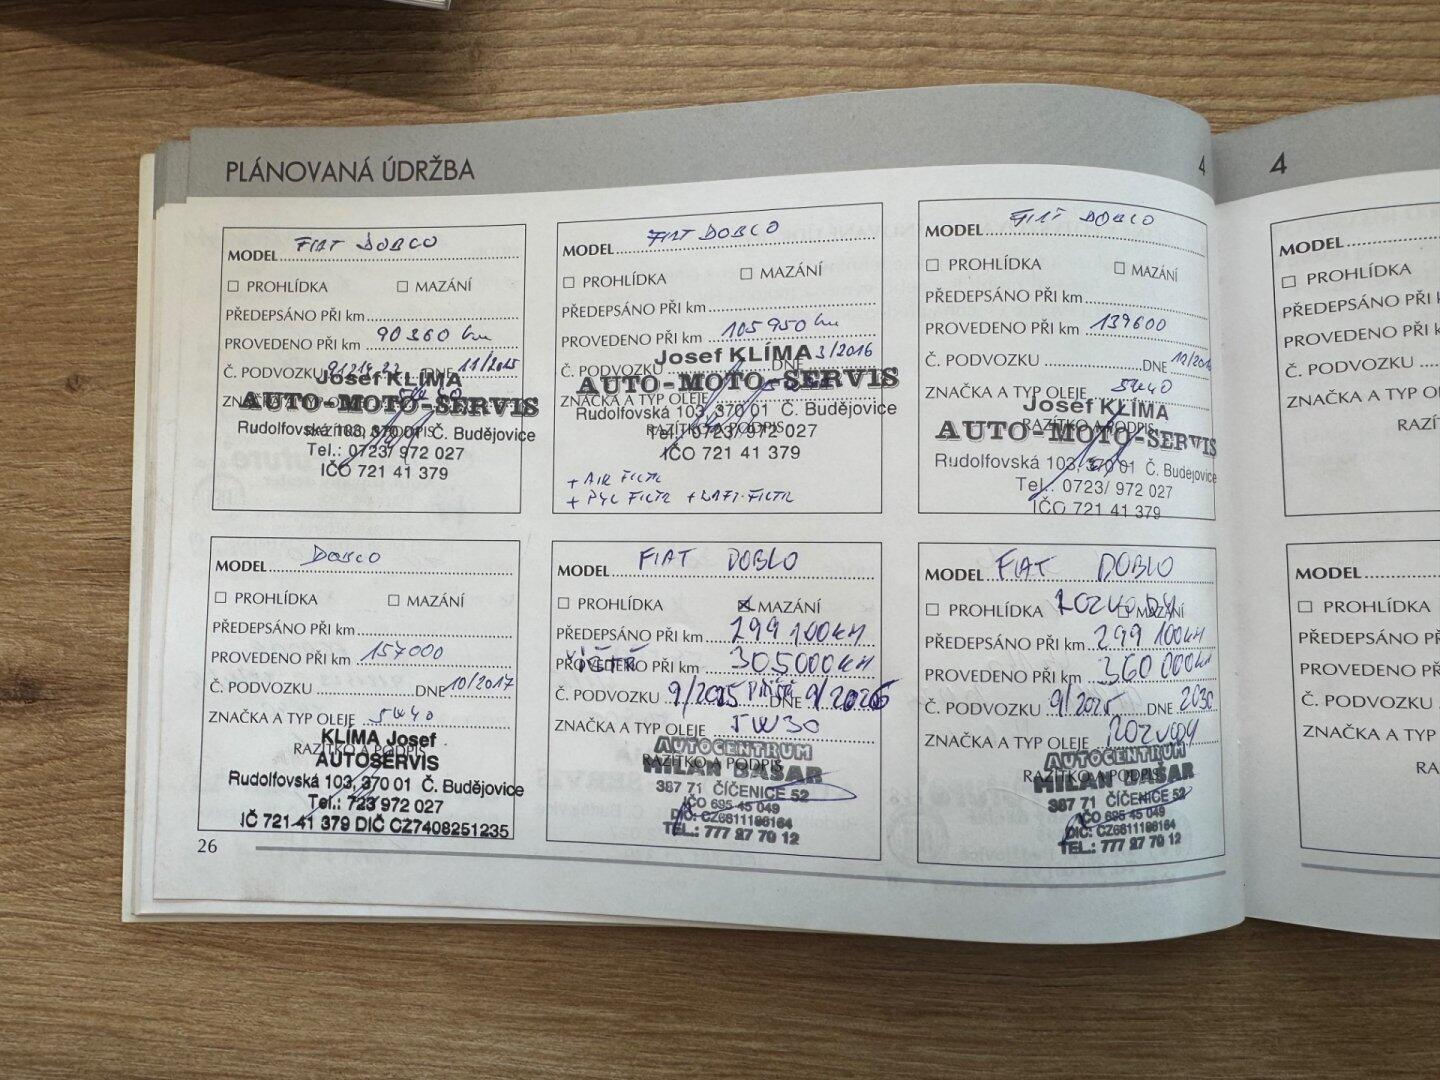 PLÁNOVANÁ ÚDRŽBA
4
MODEL FIAT DOBLO
PROHLÍDKA MAZÁNÍ
PŘEDEPSÁNO PŘI km
PROVEDENO PŘI km 90 360 km
Č. PODVOZKU DNE 11/2015
Josef KLÍMA
AUTO-MOTO-SERVIS
Rudolfovská 103, 370 01 Č. Budějovice
RAZÍTKO A PODPIS
Tel.: 0723/ 972 027
IČO 721 41 379
MODEL FIAT DOBLO
PROHLÍDKA MAZÁNÍ
PŘEDEPSÁNO PŘI km
PROVEDENO PŘI km 105 950 km
Č. PODVOZKU DNE 3/2016
Josef KLÍMA
AUTO-MOTO-SERVIS
ZNAČKA A TYP OLEJE
Rudolfovská 103, 370 01 Č. Budějovice
RAZÍTKO A PODPIS
Tel.: 0723/ 972 027
IČO 721 41 379
+ AIR FILTR
+ PYL FILTR + FILTR
MODEL FIAT DOBLO
PROHLÍDKA MAZÁNÍ
PŘEDEPSÁNO PŘI km
PROVEDENO PŘI km 139600
Č. PODVOZKU DNE
ZNAČKA A TYP OLEJE 5W40
Josef KLÍMA
RAZÍTKO A PODPIS
AUTO-MOTO-SERVIS
Rudolfovská 103, 370 01 Č. Budějovice
Tel.: 0723/ 972 027
IČO 721 41 379
MODEL DOBLO
PROHLÍDKA MAZÁNÍ
PŘEDEPSÁNO PŘI km
PROVEDENO PŘI km 157000
Č. PODVOZKU DNE 10/2017
ZNAČKA A TYP OLEJE 5W40
KLÍMA Josef
RAZÍTKO A PODPIS
AUTOSERVIS
Rudolfovská 103, 370 01 Č. Budějovice
Tel.: 723 972 027
IČ 721 41 379 DIČ CZ7408251235
MODEL FIAT DOBLO
PROHLÍDKA MAZÁNÍ
PŘEDEPSÁNO PŘI km 299 100 KM
PROVEDENO PŘI km 305 000 KM
Č. PODVOZKU 9/2025 PŘÍŠTÍ DNE 9/2026
ZNAČKA A TYP OLEJE 5W30
AUTOCENTRUM
RAZÍTKO A PODPIS
MILAN BASAR
387 71 ČÍČENICE 52
IČO 695 45 049
DIČ: CZ6811198164
TEL.: 777 27 70 12
MODEL FIAT DOBLO
PROHLÍDKA ROZVODY MAZÁNÍ
PŘEDEPSÁNO PŘI km 299 100 KM
PROVEDENO PŘI km 360 000 KM
Č. PODVOZKU 9/2025 DNE 2030
ZNAČKA A TYP OLEJE ROZVODY
AUTOCENTRUM
RAZÍTKO A PODPIS
MILAN BASAR
387 71 ČÍČENICE 52
IČO 695 45 049
DIČ: CZ6811198164
TEL.: 777 27 70 12
26
4
MODEL
PROHLÍDKA
PŘEDEPSÁNO PŘI
PROVEDENO PŘI
Č. PODVOZKU
ZNAČKA A TYP
MODEL
PROHLÍDKA
PŘEDEPSÁNO PŘI
PROVEDENO PŘI
Č. PODVOZKU
ZNAČKA A TYP